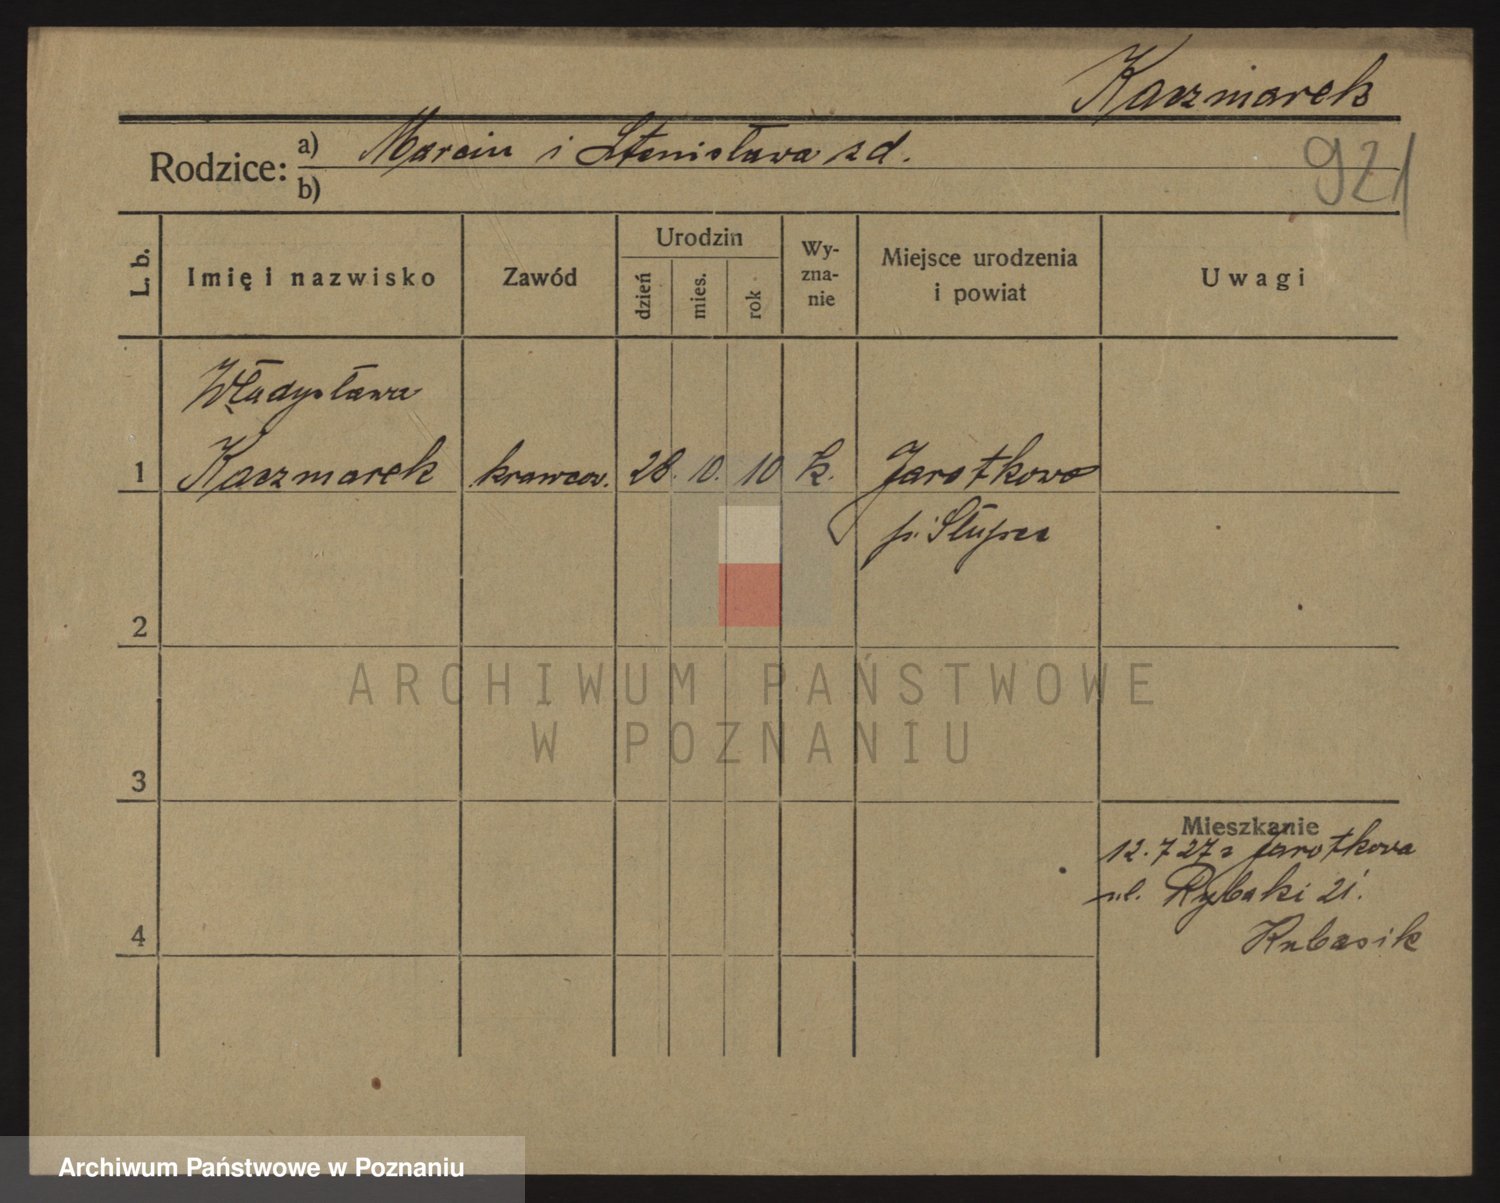 Kaczmarek
Rodzice: a) Marcin i Stanisława z d.
b)
921
L. b.
Imię i nazwisko
Zawód
Urodzin
dzień
mies.
rok
Wy-
zna-
nie
Miejsce urodzenia
i powiat
Uwagi
Władysława
1 Kaczmarek krawcow. 28. 10. 10 k. Jarotkowo
p. Słupca
2
3
4
Mieszkanie
12.7 27 z Jarotkowa
ul. Rybaki 21.
Kubasik
ARCHIWUM PAŃSTWOWE
W POZNANIU
Archiwum Państwowe w Poznaniu